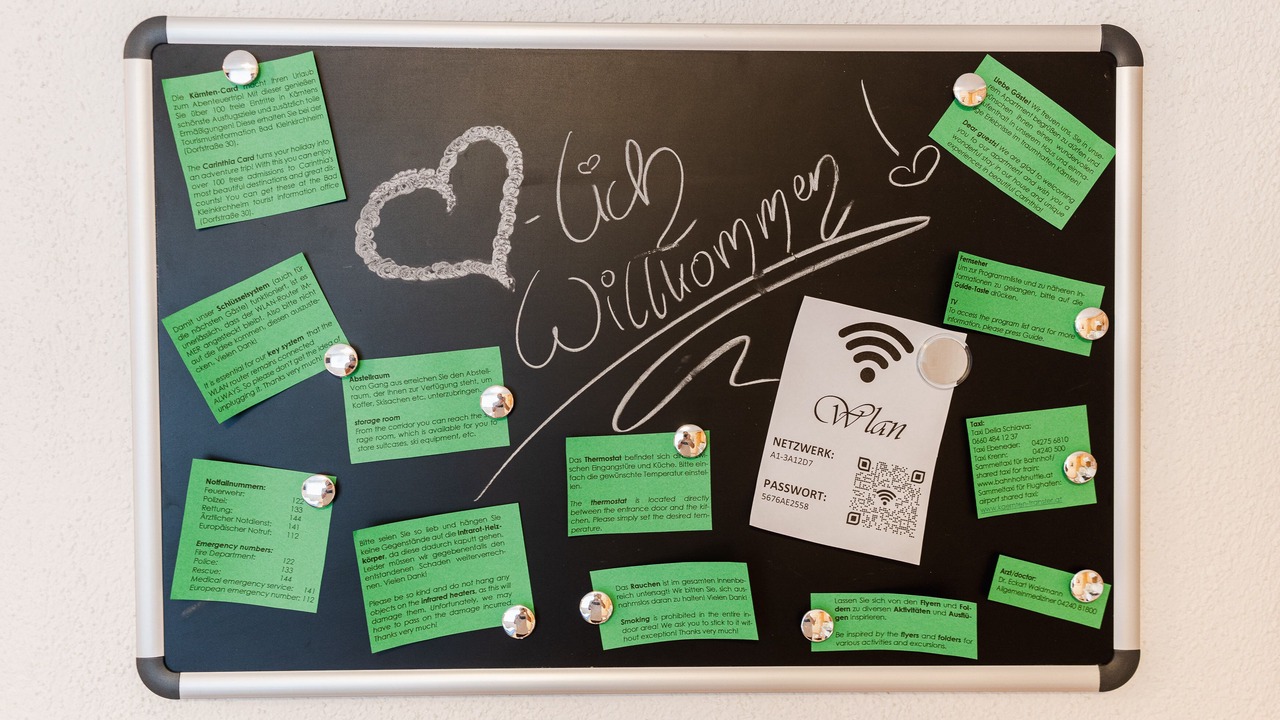 Die Kärnten-Card macht Ihren Urlaub
zum Abenteuertrip! Mit dieser genießen
Sie über 100 freie Eintritte in Kärntens
schönste Ausflugsziele und zusätzlich tolle
Ermäßigungen! Diese erhalten Sie in der
Tourismusinformation Bad Kleinkirchheim
(Dorfstraße 30).
The Carinthia Card turns your holiday into
an adventure trip! With this you can enjoy
over 100 free admissions to Carinthia's
most beautiful destinations and great dis-
counts! You can get these at the Bad
Kleinkirchheim tourist information office
(Dorfstraße 30).
-lich
Willkommen
!
Liebe Gäste! Wir freuen uns, Sie in unse-
rem Apartment begrüßen zu dürfen und
wünschen Ihnen einen wundervollen
Aufenthalt in unserem Haus und einma-
lige Erlebnisse im traumhaften Kärnten!
Dear guests! We are glad to welcome
you to our apartment and wish you a
wonderful stay in our house and unique
experiences in beautiful Carinthia!
Damit unser Schlüsselsystem (auch für
die nächsten Gäste) funktioniert, ist es
unerlässlich, dass der WLAN-Router IM-
MER angesteckt bleibt. Also bitte nicht
auf die Idee kommen, diesen auszuste-
cken. Vielen Dank!
It is essential for our key system that the
WLAN router remains connected
ALWAYS. So please don't get the idea of
unplugging it. Thanks very much!
Abstellraum
Vom Gang aus erreichen Sie den Abstell-
raum, der Ihnen zur Verfügung steht, um
Koffer, Skisachen etc. unterzubringen.
storage room
From the corridor you can reach the
rage room, which is available for you to
store suitcases, ski equipment, etc.
Fernseher
Um zur Programmliste und zu näheren In-
formationen zu gelangen, bitte auf die
Guide-Taste drücken.
TV
To access the program list and for more
information, please press Guide.
Wlan
NETZWERK:
A1-3A12D7
PASSWORT:
5676AE2558
Taxi:
Taxi Della Schiava:
0660 484 12 37
Taxi Ebeneder: 04275 6810
Taxi Krenn: 04240 500
Sammeltaxi für Bahnhof/
shared taxi for train:
www.bahnhofshuttle.at
Sammeltaxi für Flughafen/
airport shared taxi:
www.kaernten-transfer.at
Notfallnummern:
Feuerwehr: 122
Polizei: 133
Rettung: 144
Ärztlicher Notdienst: 141
Europäischer Notruf: 112
Emergency numbers:
Fire Department: 122
Police: 133
Rescue: 144
Medical emergency service: 141
European emergency number: 112
Bitte seien Sie so lieb und hängen Sie
keine Gegenstände auf die Infrarot-Heiz-
körper, da diese dadurch kaputt gehen.
Leider müssen wir gegebenenfalls den
entstandenen Schaden weiterverrech-
nen. Vielen Dank!
Please be so kind and do not hang any
objects on the infrared heaters, as this will
damage them. Unfortunately, we may
have to pass on the damage incurred
Thanks very much!
Das Thermostat befindet sich
schen Eingangstüre und Küche. Bitte ein-
fach die gewünschte Temperatur einstel-
len.
The thermostat is located directly
between the entrance door and the kit-
chen. Please simply set the desired tem-
perature.
Das Rauchen ist im gesamten Innenbe-
reich untersagt! Wir bitten Sie, sich aus-
nahmslos daran zu halten! Vielen Dank!
Smoking is prohibited in the entire in-
door area! We ask you to stick to it wit-
hout exception! Thanks very much!
Lassen Sie sich von den Flyern und Fol-
dern zu diversen Aktivitäten und Ausflü-
gen inspirieren.
Be inspired by the flyers and folders for
various activities and excursions.
Arzt/doctor:
Dr. Eckart Waidmann
Allgemeinmediziner 04240 81800